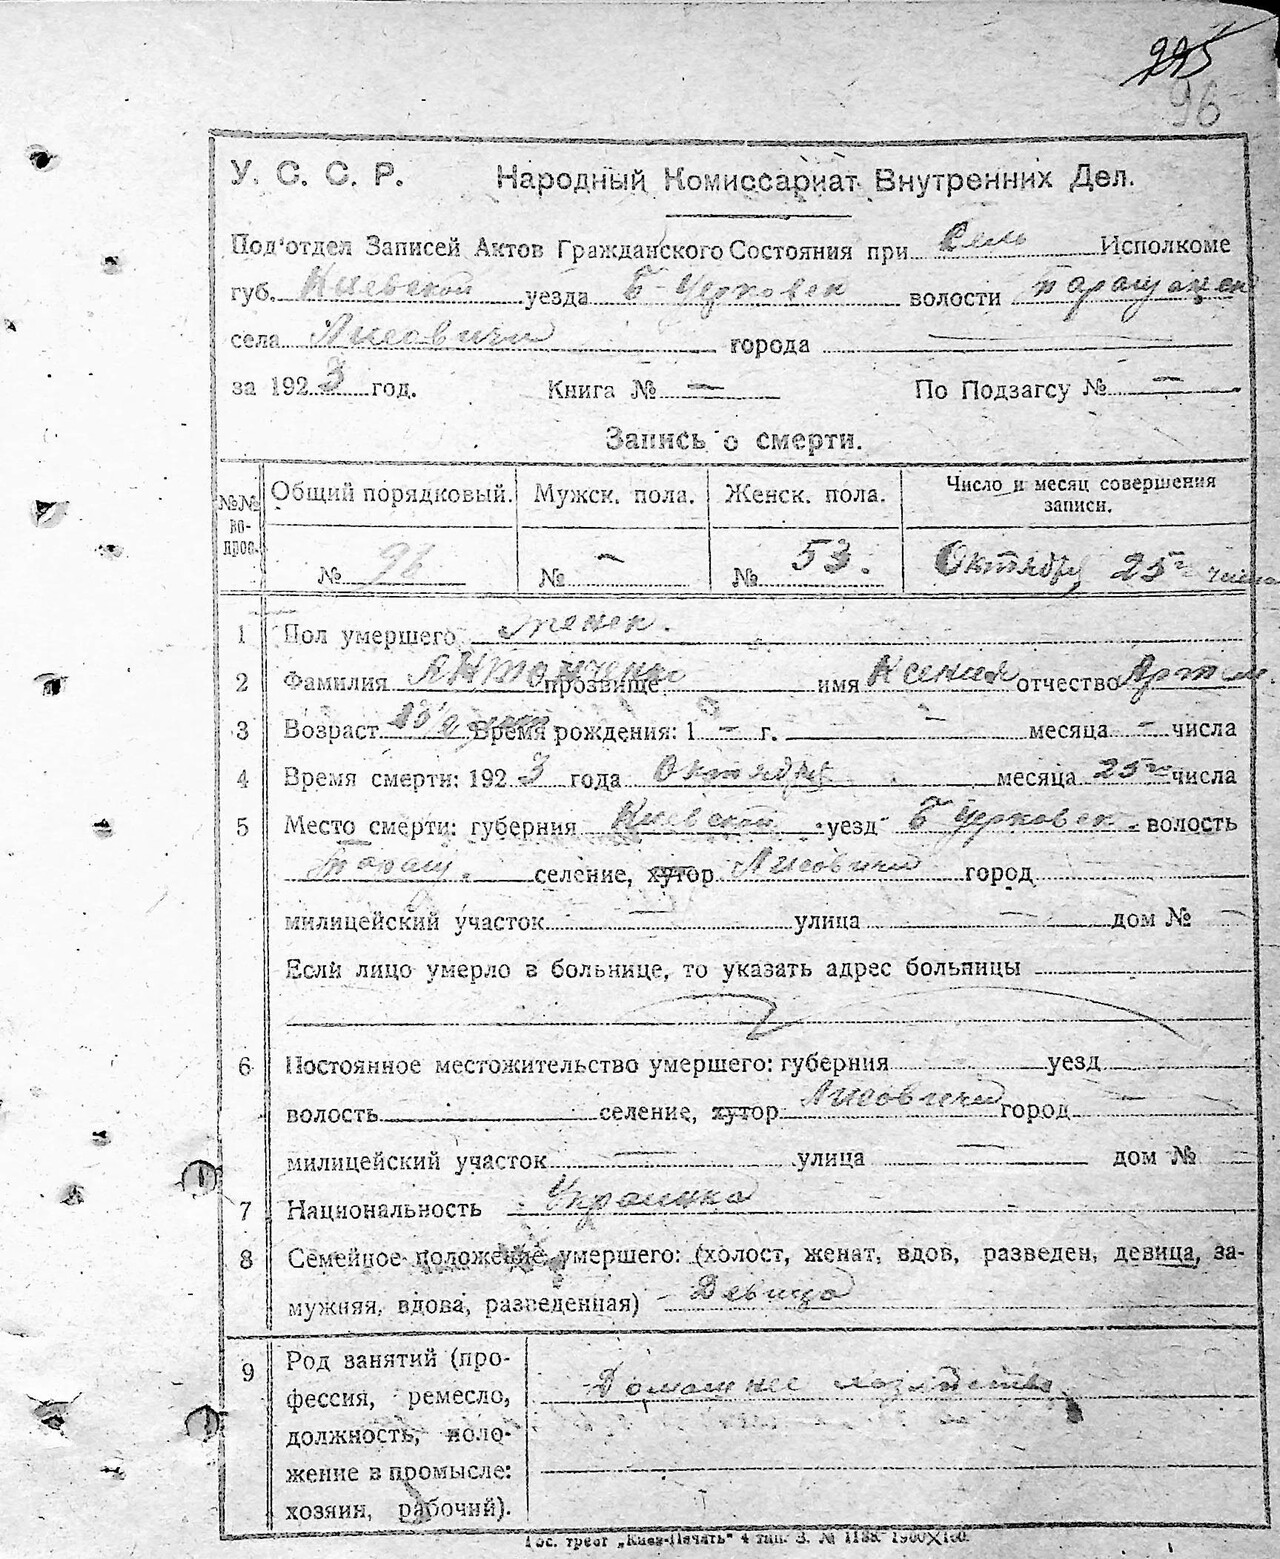 225
96
У. С. С. Р. Народный Комиссариат Внутренних Дел.
Под'отдел Записей Актов Гражданского Состояния при Сель Исполкоме
губ. Киевской уезда Б-Церковск волости Таращанск
села Лисовичи города —
за 1923 год. Книга № — По Подзагсу № —
Запись о смерти.
№№ во-прос. Общий порядковый. Мужск. пола. Женск. пола. Число и месяц совершения записи.
№ 96 № — № 53. Октября 25го числа
1 Пол умершего женск.
2 Фамилия прозвище имя Ксения отчество Артем.
3 Возраст Время рождения: 1 — г. — месяца — числа
4 Время смерти: 1923 года Октября месяца 25го числа
5 Место смерти: губерния Киевской уезд Б Церковск. волость
Таращ. селение, хутор Лисовичи город
милицейский участок — улица — дом № —
Если лицо умерло в больнице, то указать адрес больницы
6 Постоянное местожительство умершего: губерния уезд
волость селение, хутор Лисовичи город —
милицейский участок — улица — дом №
7 Национальность Украинка
8 Семейное положение умершего: (холост, женат, вдов, разведен, девица, за-
мужняя, вдова, разведенная) – Девица
9 Род занятий (про-
фессия, ремесло, Домашнее хозяйство
должность, поло-
жение в промысле:
хозяин, рабочий).
Гос. трест „Киев-Печать“ 4 тип. З. № 1138. 1900×100.